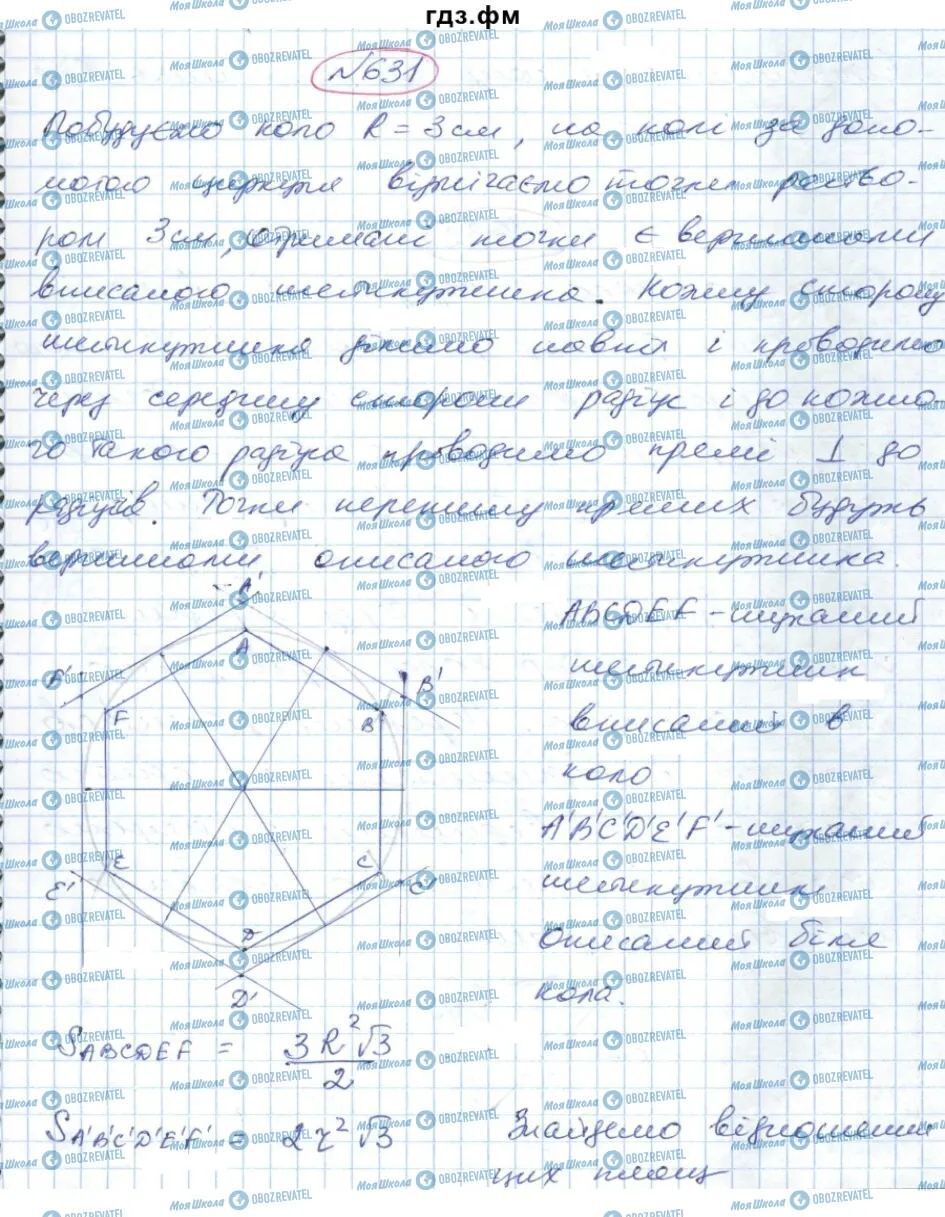 гдз.фм
№631
Побудуємо коло R = 3 см, на колі за допо-
могою циркуля відмічаємо точки раство-
ром 3 см, отримані точки є вершинами
вписаного шестикутника. Кожну сторону
шестикутника ділимо навпіл і проводимо
через середину сторони радіус і до кожно
го такого радіуса проводимо прямі ⊥ до
радіусів. Точки перетину прямих будуть
вершинами описаного шестикутника.
A'
A
F'
B'
F
B
E
C
E'
C'
D
D'
ABCDEF - шуканий
шестикутник
вписаний в
коло
A'B'C'D'E'F' - шуканий
шестикутник
описаний біля
кола.
S ABCDEF = 3R²√3 / 2
S A'B'C'D'E'F' = 2r²√3 Знайдемо відношення
цих площ
МояШкола OBOZREVATEL